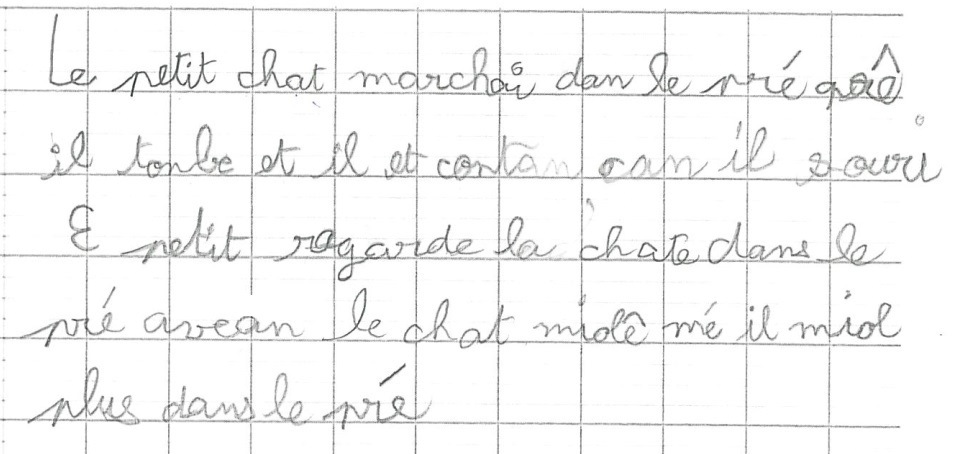 Le petit chat marchai dan le pré
il tonbe et il et contan can il souri
E petit regarde la chate dans le
pré avean le chat miolê mé il miol
plus dans le pré